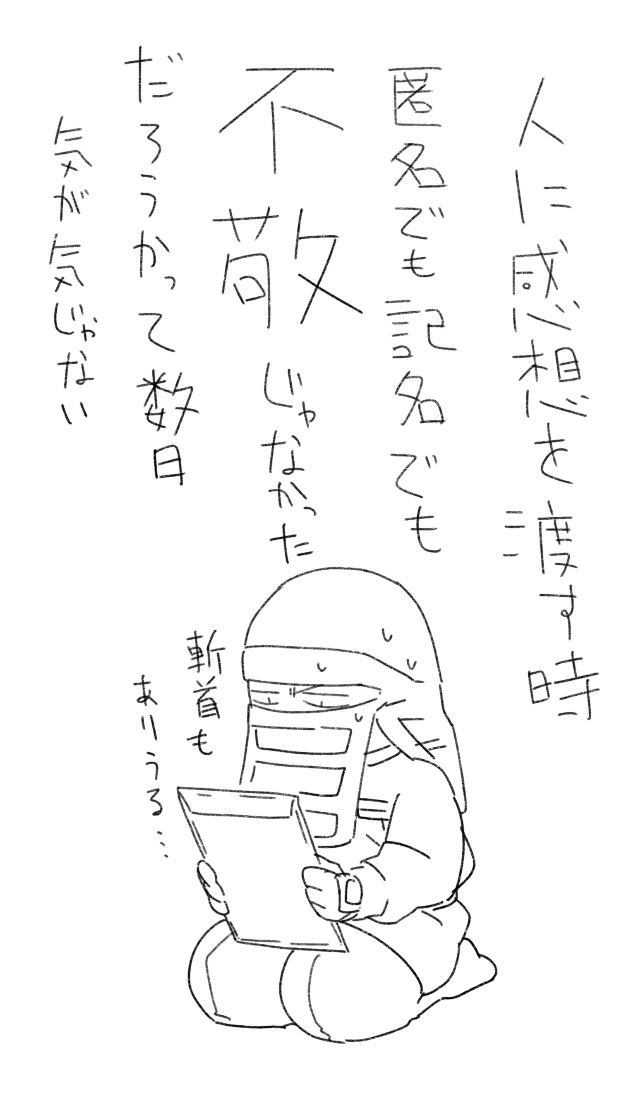 人に感想を渡す時
匿名でも記名でも
不敬じゃなかった
だろうかって数日
気が気じゃない
斬首も
ありうる…